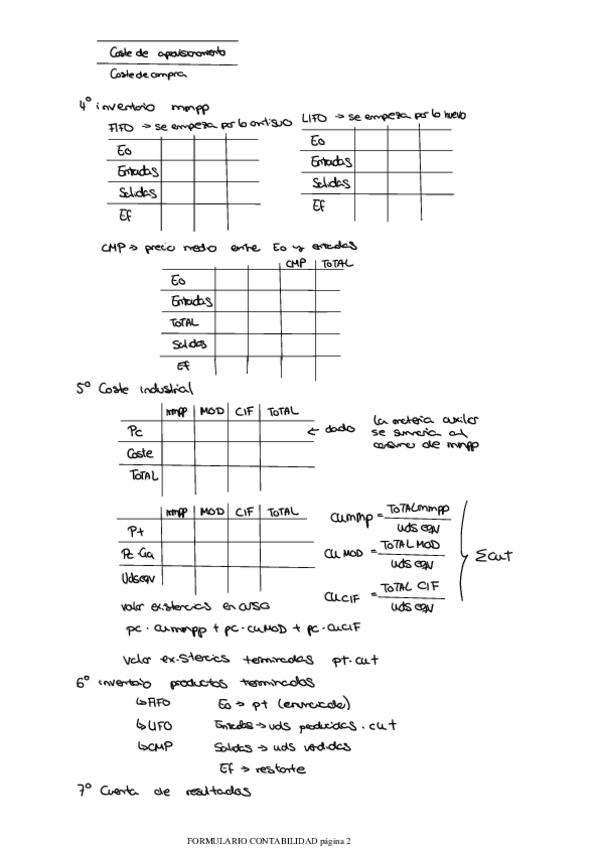 Coste de aprovisionamiento
Coste de compra
4º inventario mmpp
FIFO → se empieza por lo antiguo
LIFO → se empieza por lo nuevo
Eo
Entradas
Salidas
Ef
Eo
Entradas
Salidas
Ef
CMP → precio medio entre Eo y entradas
CMP TOTAL
Eo
Entradas
TOTAL
Salidas
Ef
5º Coste industrial
mmpp MOD CIF TOTAL
Pc
← dado
Coste
TOTAL
la materia auxiliar
se sumaría al
consumo de mmpp
mmpp MOD CIF TOTAL
Pt
Pc·Ga
Uds eqv
cu mmp = TOTAL mmpp / uds eqv
cu MOD = TOTAL MOD / uds eqv
cu CIF = TOTAL CIF / uds eqv
Σcut
valor existencias en curso
pc · cu mmpp + pc · cu MOD + pc · cu CIF
valor existencias terminadas pt · cut
6º inventario productos terminados
↳ FIFO
↳ LIFO
↳ CMP
Eo → pt (enunciado)
Entradas → uds producidas · cut
Salidas → uds vendidas
Ef → restante
7º Cuenta de resultados
FORMULARIO CONTABILIDAD página 2